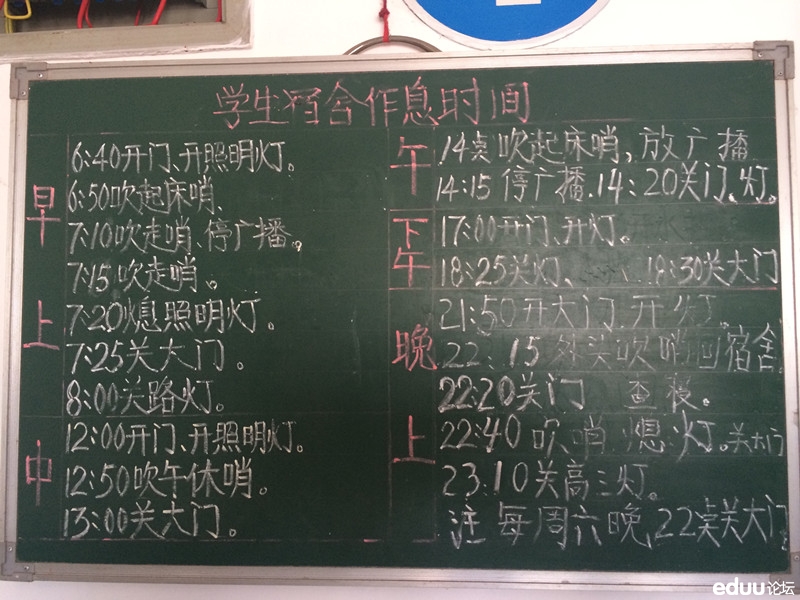 学生宿舍作息时间
早上
6:40开门、开照明灯。
6:50吹起床哨、
7:10吹走哨、停广播。
7:15吹走哨。
7:20熄照明灯。
7:25关大门。
8:00关路灯。
中
12:00开门、开照明灯。
12:50吹午休哨。
13:00关大门。
午
14点吹起床哨、放广播
14:15停广播.14:20关门、灯。
下午
17:00开门、开灯。
18:25关灯、18:30关大门
晚上
21:50开大门.开灯.
22:15外头吹哨回宿舍
22:20关门 查寝。
22:40吹哨.熄灯。关大门
23:10关高三灯。
注 每周六晚,22点关大门
eduu论坛